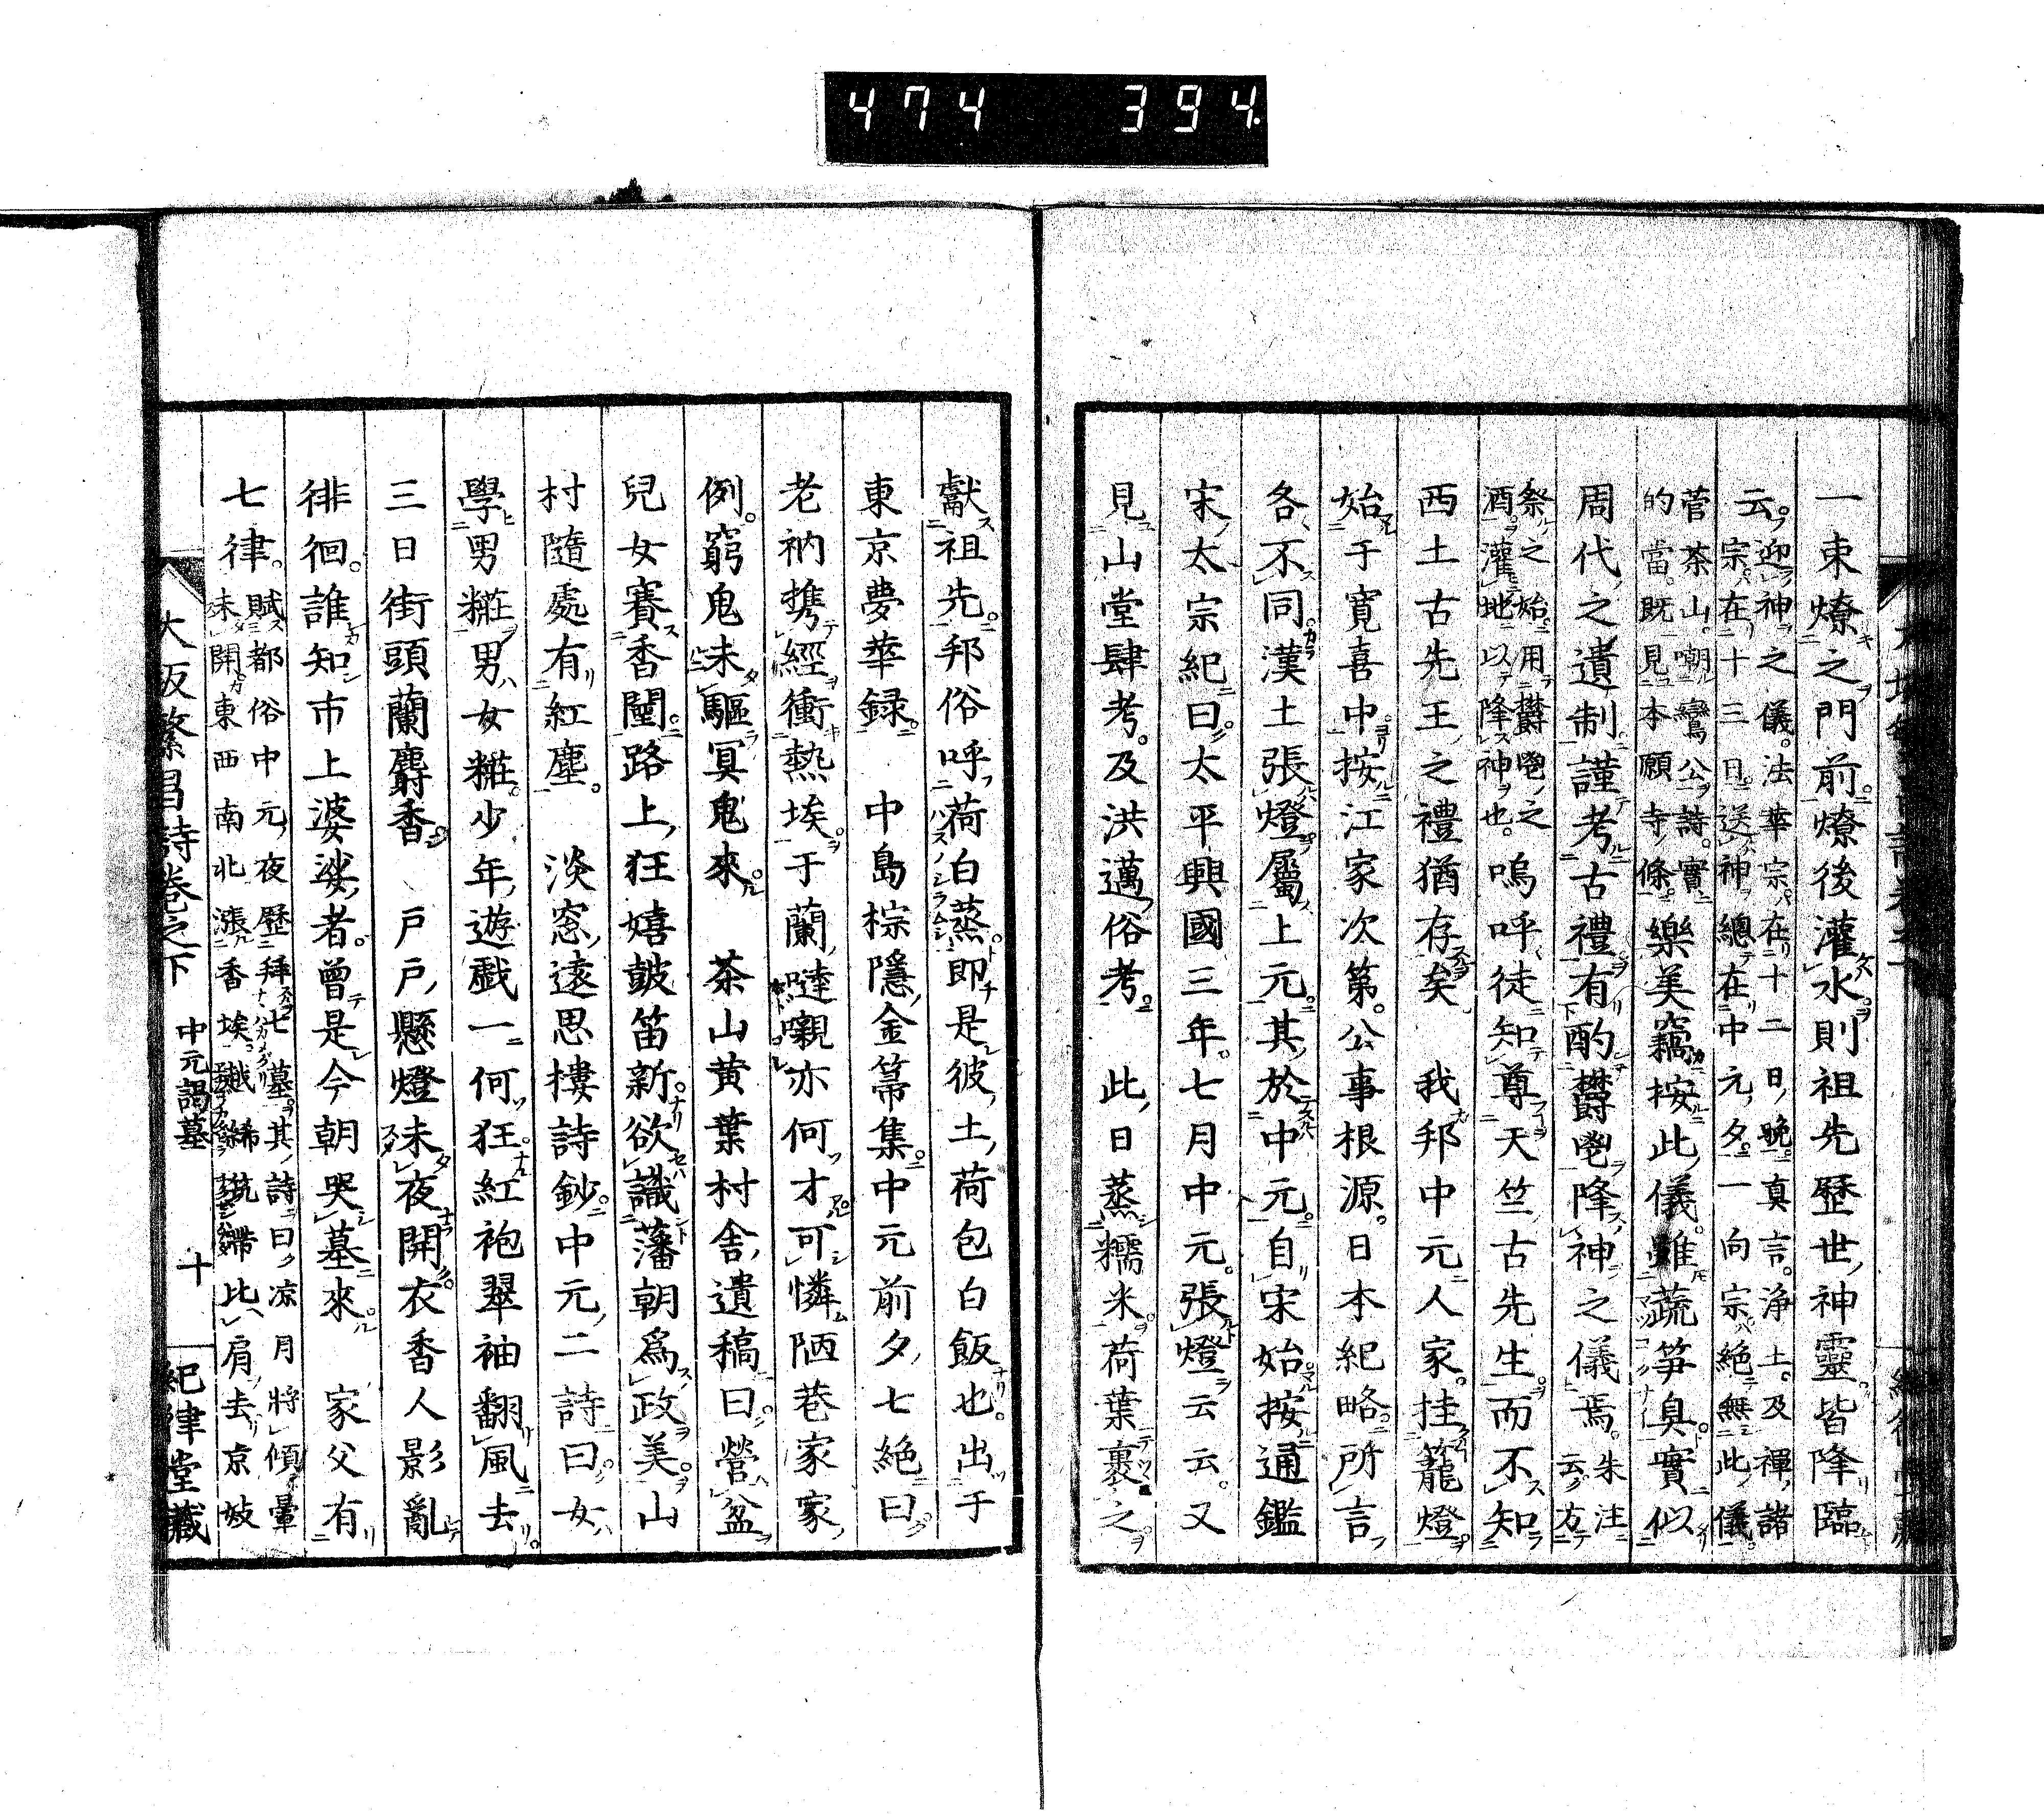 474 394
一束燎之門前燎後灌水則祖先歷世神靈皆降臨
云迎神之儀法華宗在十二日晩真言淨土及禪諸
宗在十三日送神總在中元夕一向宗絶無此儀
菅茶山嘲鸞公詩實
的當既見本願寺條樂美竊按此儀雖蔬笋臭實似
周代之遺制謹考古禮有酌欝鬯降神之儀焉朱注
云方
祭之始用欝鬯之
酒灌地以降神也嗚呼徒知尊天竺古先生而不知
西土古先王之禮猶存矣 我邦中元人家挂籠燈
始于寛喜中按江家次第公事根源日本紀略所言
各不同漢土張燈屬上元其於中元自宋始按通鑑
宋太宗紀曰太平興國三年七月中元張燈云云又
見山堂肆考及洪邁俗考 此日蒸糯米荷葉裹之
獻祖先邦俗呼荷白蒸即是彼土荷包白飯也出于
東京夢華録 中島棕隱金箒集中元前夕七絶曰
老衲携經衝熱埃于蘭噠嚫亦何才可憐陋巷家家
例窮鬼未驅冥鬼來 茶山黄葉村舎遺稿曰營盆
兒女賽香闉路上狂嬉鼓笛新欲識藩朝爲政美山
村隨處有紅塵 淡窓遠思樓詩鈔中元二詩曰女
學男糚男女糚少年遊戯一何狂紅袍翠袖翻風去
三日街頭蘭麝香 戸戸懸燈未夜開衣香人影亂
徘徊誰知市上婆娑者曾是今朝哭墓來 家父有
七律賦都俗中元夜歷拜七墓其詩曰凉月將傾暈
未開東西南北漲香埃越絺筑帶比肩去京妓
大阪繁昌詩卷之下 中元謁墓 十 紀律堂藏